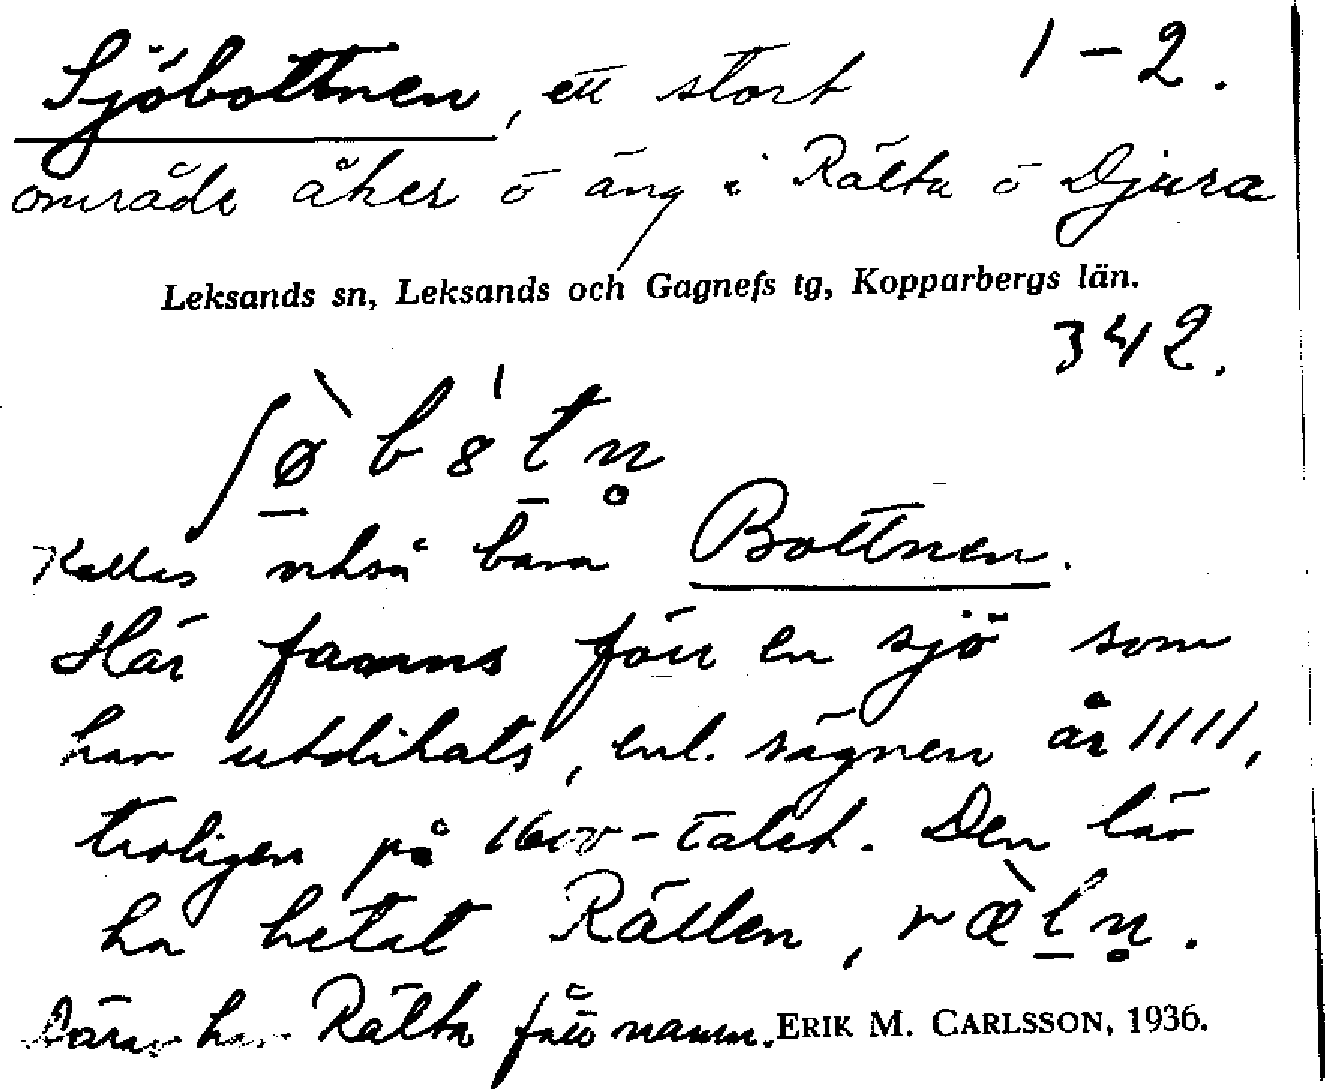 Sjöbottnen, ett stort 1-2.
område åker o äng i Rälta o Djura
Leksands sn, Leksands och Gagnefs tg, Kopparbergs län.
342.
Kallas också bara Bottnen.
Här fanns förr en sjö som
har utdikats, enl. sägnen år 1111,
troligen på 1600-talet. Den lär
ha hetat Rällen, ræln.
Därav har Rälta fått namn. ERIK M. CARLSSON, 1936.